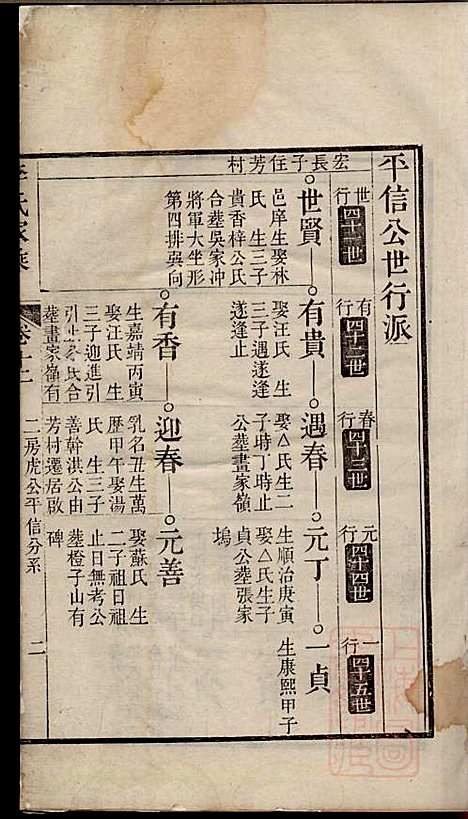 平信公世行派
世行 四十一世
有行 四十二世
春行 四十三世
元行 四十四世
一行 四十五世
宏長子住芳村
世賢
邑庠生娶林
氏 生三子
貴香梓公氏
合葬吳家冲
將軍大坐形
第四排與向
有貴
娶汪氏 生
三子遇遂逢
遂逢止
遇春
娶△氏生二
子時丁時止
公葬畫家嶺
元丁
生順治庚寅
娶△氏生子
貞公葬張家
塢
一貞
生康熙甲子
有香
生嘉靖丙寅
娶汪氏 生
三子迎進引
氏合
葬畫家嶺有
迎春
乳名丑生萬
歷甲午娶湯
氏 生三子
善幹洪公由
芳村遷居啟
元善
娶蘇氏 生
二子祖日祖
止日無考公
葬橙子山有
碑
氏家乘
二房虎公平信分系
二